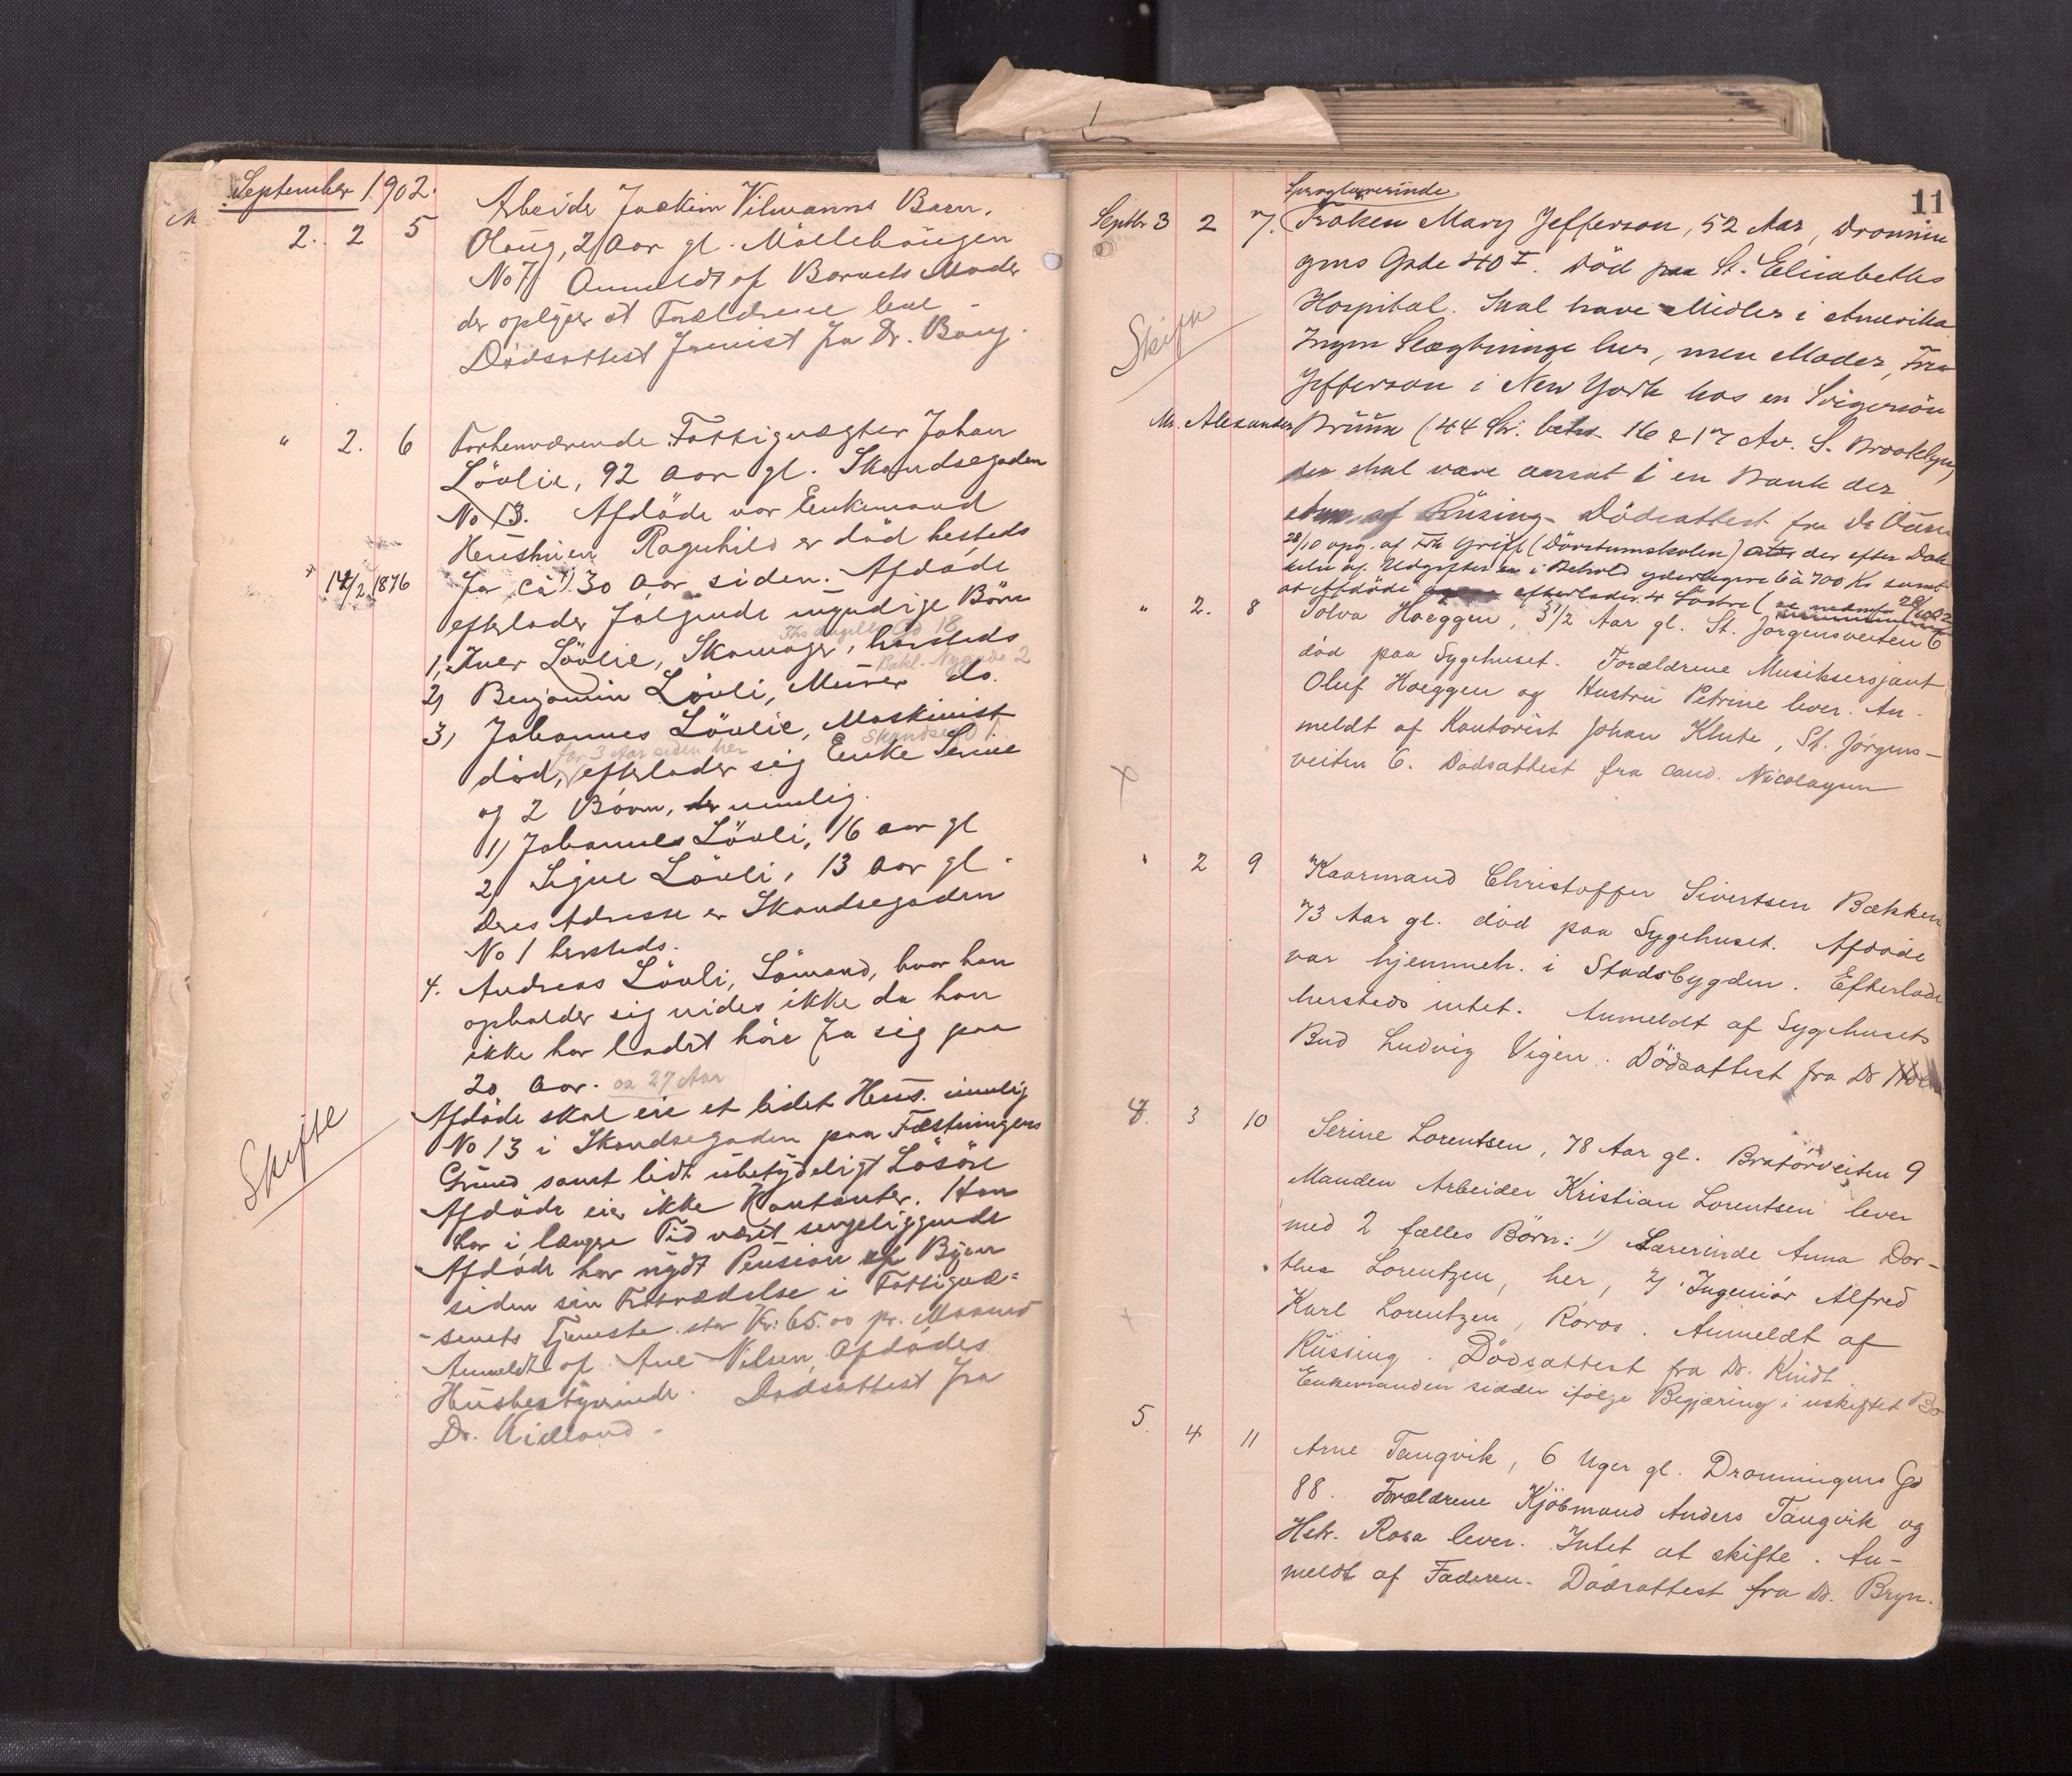 September 1902.
2. 2 5 Arbeider Joakim Vilmanns Barn,
Olaug, 2 Aar gl. Möllebaugen
No 7. Anmeldt af Barnets Moder
der oplyser at Forældrene leve
Dödsattest frem­vist fra Dr.
" 2. 6 Forhenværende Fattigvægter Johan
Lövlie, 92 Aar gl. Skandsegaden
No 13. Afdöde var Enkemand
Hustruen Ragnhild er död hersteds
14/2 1876 for ca 30 Aar siden. Afdöde
efterlader fölgende myndige Börn
Ths Angells Gd 18
1, Iver Lövlie, Skomager, hersteds
Bakl. Nygade 2
2) Benjamin Lövli, Murer do.
3) Johannes Lövlie, Maskinist
for 3 Aar siden her Skandsegd 1.
död, efterlader sig Enke Serine
og 2 Börn, nemlig
1) Johannes Lövli, 16 Aar gl
2) Signe Lövli, 13 Aar gl.
Deres Adresse er Skandsegaden
No 1 hersteds.
4. Andreas Lövli, Sömand, hvor han
opholder sig vides ikke da han
ikke har ladet höre fra sig paa
20 Aar. ca 27 Aar
Skifte
Afdöde skal eie et lidet Hus nemlig
No 13 i Skandsegaden paa Fæstningens
Grund samt lidt ubetydeligt Lösöre
Afdöde eier ikke Kontanter. Han
har i længre Tid været sengeliggende
Afdöde har nydt Pension af Byen
siden sin Fratrædelse i Fattigvæ=
-senets Tjeneste stor Kr: 65.00 pr. Maaned
Anmeldt af Ane Nilsen, Afdödes
Husbestyrerinde. Dödsattest fra
Dr. Kielland.
11
Sproglærerinde
Septbr 3 2 7. Fröken Mary Jefferson, 52 Aar, Dronnin
gens Gade 40 I. Död paa St. Elisabeths
Hospital. Skal have Midler i Amerika
Skifte
Ingen Slægtninge her, men Moder, Fru
Jefferson i New York hos en Svigersön
Mr. Alexander Bruun (44 Str. betw 16 & 17 Av. S. Brooklyn,
der skal være ansat i en Bank der
af Rüsing. Dödsattest fra Dr
28/10 opg. af Frk Griff (Dövstumskolen) der efter
af Udgifter i Behold yderligere 6 à 700 Kr samt
at Afdöde efterlader 4 Södre
" 2. 8 Tolva Hoeggen, 3 1/2 Aar gl. St. Jörgensveiten 6
död paa Sygehuset. Forældrene Musiksersjant
Oluf Hoeggen og Hustru Petrine lever. An-
meldt af Kontorist Johan Klute, St. Jörgens-
veiten 6. Dödsattest fra cand. Nicolaysen
" 2 9 Kaarmand Christoffer Sivertsen Bækken
73 Aar gl. död paa Sygehuset. Afdöde
var hjemmeh. i Stadsbygden. Efterlader
hersteds intet. Anmeldt af Sygehusets
Bud Ludvig Vigen. Dödsattest fra Dr
4. 3 10 Serine Lorentsen, 78 Aar gl. Bratörveiten 9
Manden Arbeider Kristian Lorentsen lever
med 2 fælles Börn: 1) Lærerinde Anna Dor-
thea Lorentzen, her, 2) Ingeniör Alfred
Karl Lorentzen, Röros. Anmeldt af
Rüssing. Dödsattest fra Dr. Kindt.
Enkemanden sidder ifölge Begjæring i uskiftet Bo
5. 4 11 Arne Tangvik, 6 Uger gl. Dronningens Gd
88. Forældrene Kjöbmand Anders Tangvik og
Hstr. Rosa lever. Intet at skifte. An-
meldt af Faderen. Dödsattest fra Dr. Bryn.